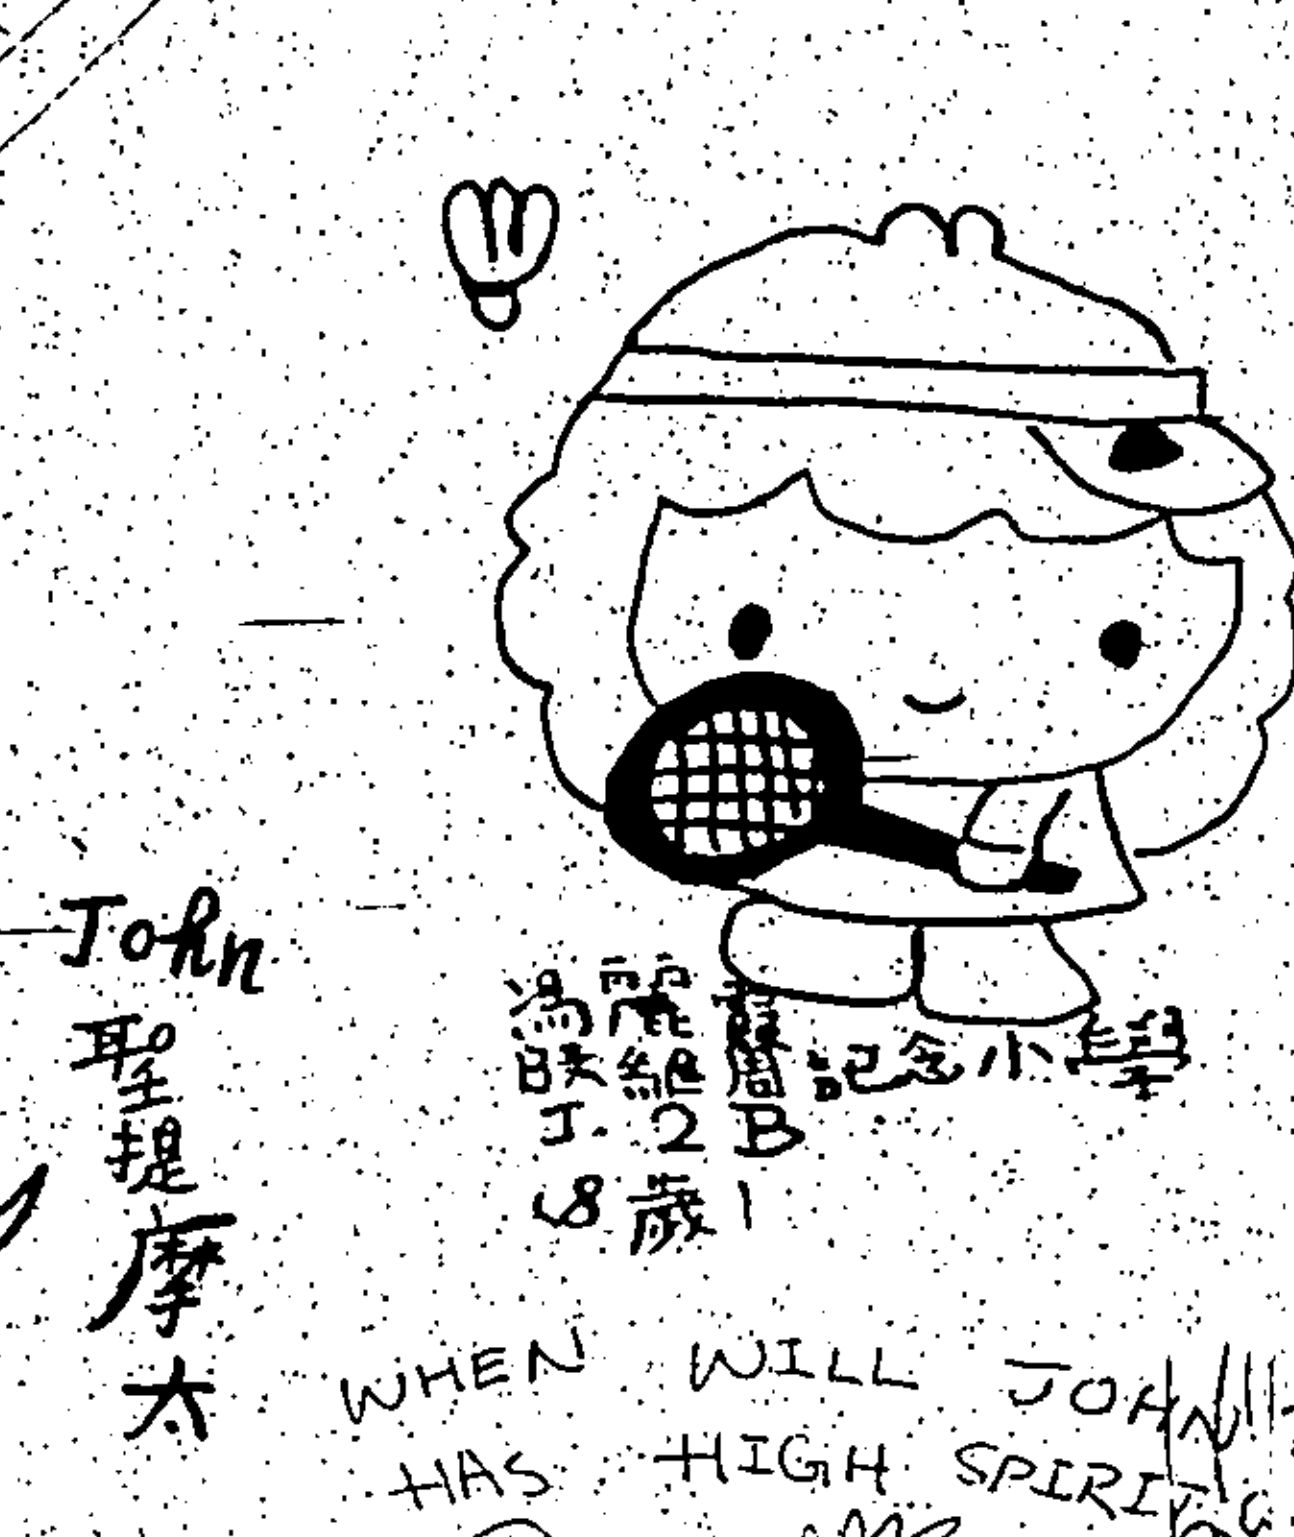 John
聖提摩太
馮麗霞
陳維周記念小學
J. 2 B
8歲
WHEN WILL JOHN
HAS HIGH SPIRIT